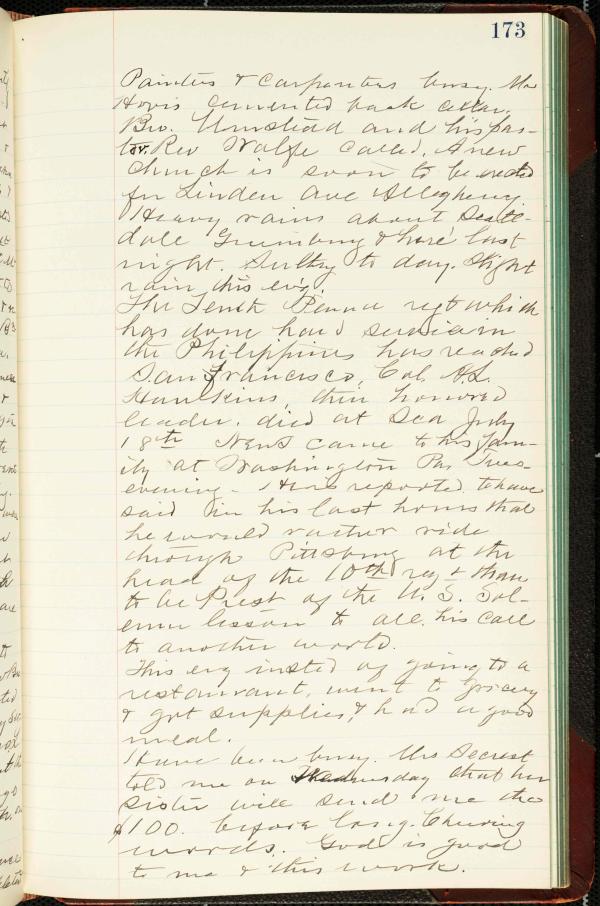 173
Painters & Carpenters busy. Mr
Hovis cemented back cellar.
Bro. Umstead and his pas-
tor Rev Wolfe called. A new
Church is soon to be erected
for Linden Ave Allegheny.
Heavy rains about Scott-
dale & here last
night. Sultry to day. Slight
rain this ev'g.
The Tenth Penna regt which
has done hard service in
the Philippines has reached
San Francisco, Col. A.L.
Hawkins, their honored
leader, died at Sea July
18th News came to his fam-
ily at Washington Pa, Tues-
evening - He is reported to have
said in his last hours that
he would rather ride
through Pittsburg at the
head of the 10th regt than
to be Prest of the U.S. Sol-
emn lesson to all. his call
to another world.
This evg insted of going to a
restaurant, went to grocery
& got supplies, & had a good
meal.
Have been busy. Mrs Secrest
told me on Wednesday that her
sister will send me the
$100. before long. Cheering
words. God is good
to me & this work.